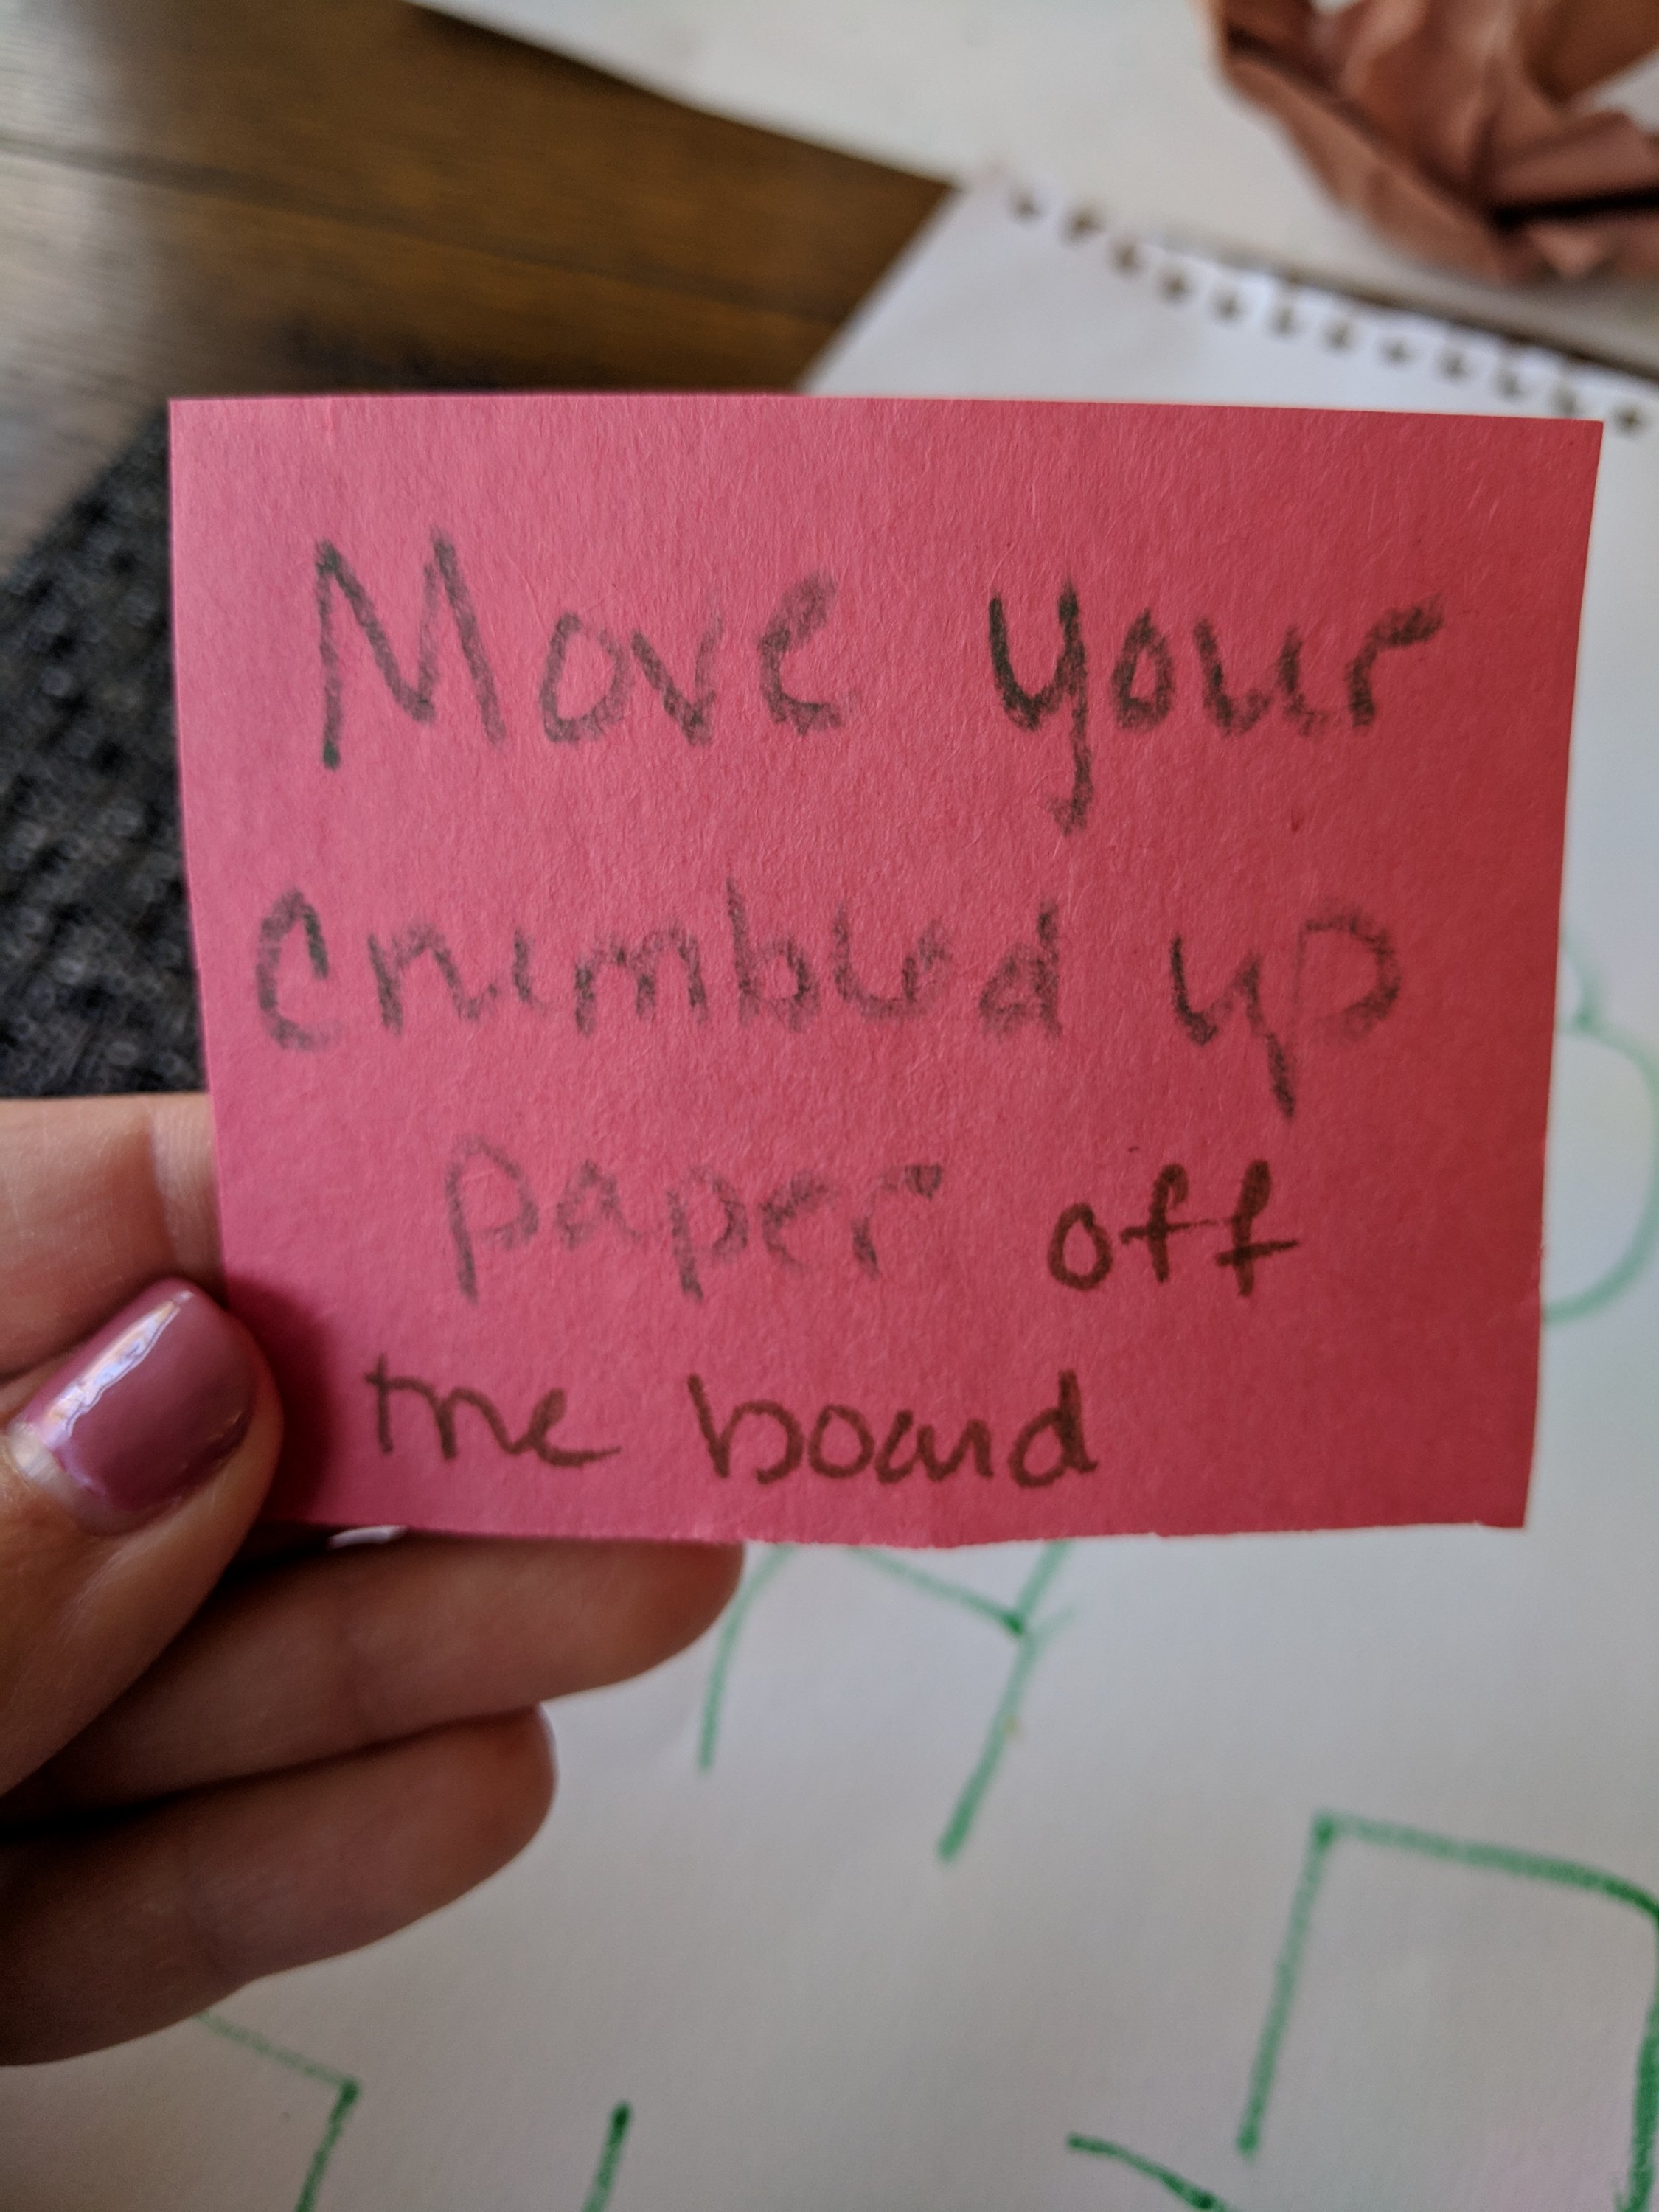 Move your
crumbled up
paper off
the board